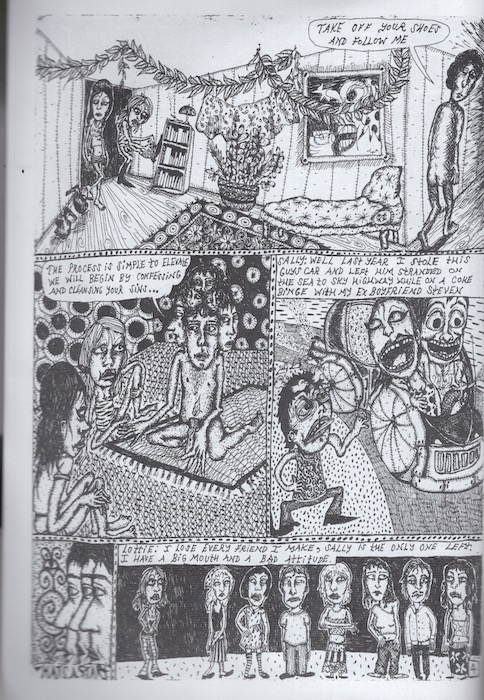 TAKE OFF YOUR SHOES
AND FOLLOW ME
THE PROCESS IS SIMPLE TO ELEVATE
WE WILL BEGIN BY CONFESSING
AND CLEANSING YOUR SINS...
SALLY: WELL LAST YEAR I STOLE THIS
GUYS CAR AND LEFT HIM STRANDED ON
THE SEA TO SKY HIGHWAY WHILE ON A COKE
BINGE WITH MY EX BOYFRIEND STEVEN
LOTTIE: I LOSE EVERY FRIEND I MAKE, SALLY IS THE ONLY ONE LEFT,
I HAVE A BIG MOUTH AND A BAD ATTITUDE.